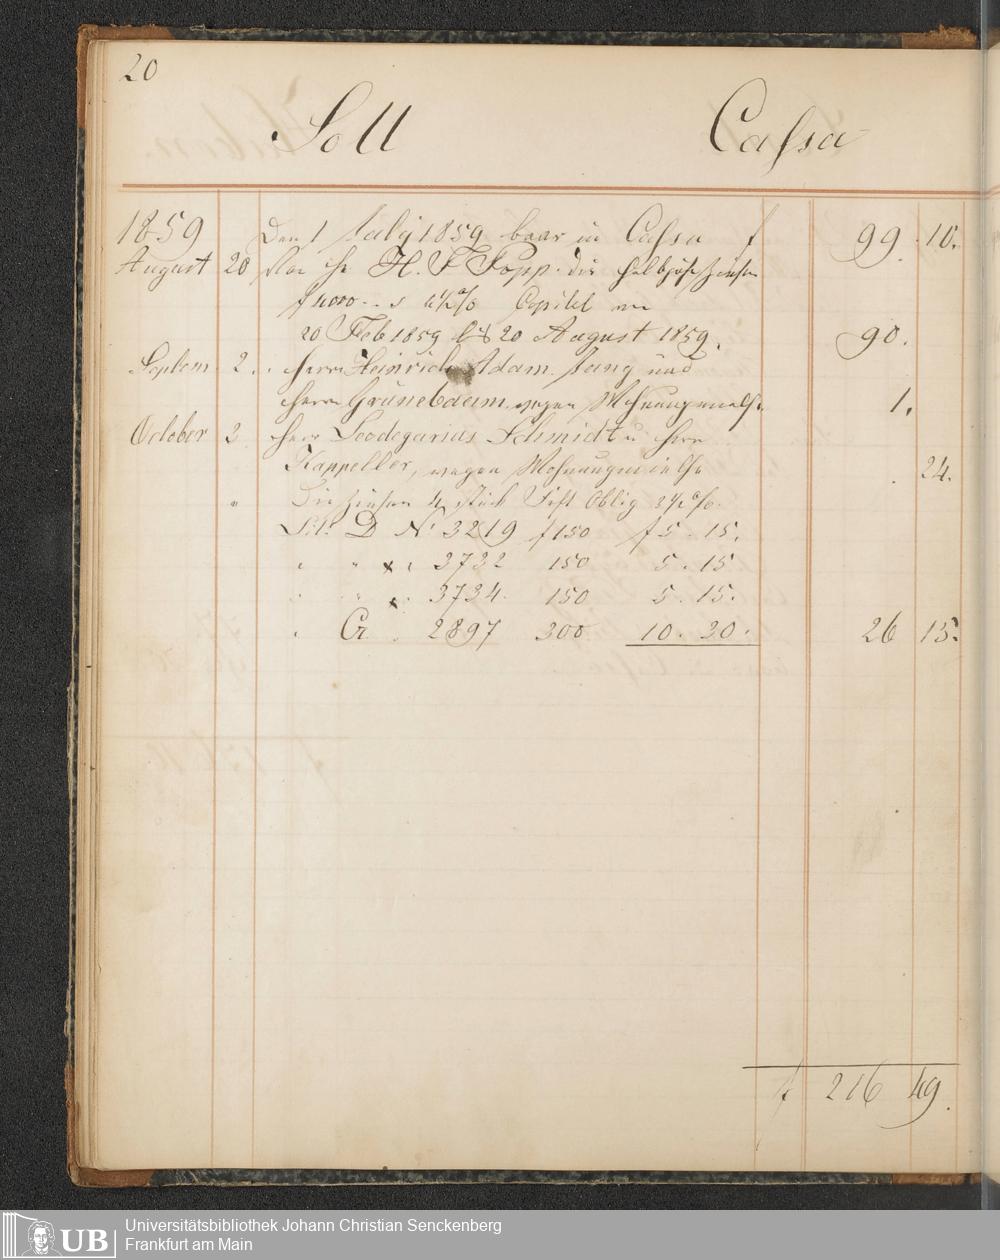 20
Soll Cassa
1859 Den 1 July 1859 baar in Cassa f 99. 10.
August 20 Von H. H. F. Popp die halbjähr Zinsen
f 4000 .. à 4½ % Capital vom
20 Feb 1859 bis 20 August 1859. 90.
Septem 2. Herrn Heinrich Adam Jung und
Herrn Grünebaum wegen Wohnungsmiethe 1.
October 2 Herr Leodegarius Schmidt u Herrn
Kappeller, wegen Wohnungsmiethe 24.
" Die Zinsen 4 Stück Oblig 3½ %.
Litt. D No 3219 f 150 f 5. 15.
" " 3732 150 5. 15
" " 3734. 150 5. 15.
" Cr 2897 300 10. 30. 26 15.
f 216 49.
Universitätsbibliothek Johann Christian Senckenberg
Frankfurt am Main
UB